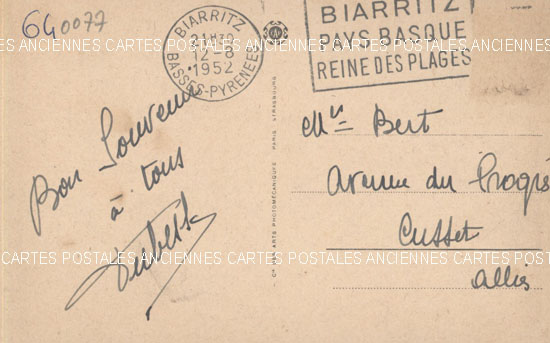 640077
BIARRITZ
21H30
12-8
1952
BASSES-PYRENEES
BIARRITZ
PAYS BASQUE
REINE DES PLAGES
ANCIENNES CARTES POSTALES ANCIENNES CARTES POSTALES ANCIENNES CARTES POSTALES ANCIENNES
Bon Souvenir
à tous
Mr Bert
Avenue du Progrès
Cusset
Allier
CARTES POSTALES ANCIENNES CARTES POSTALES ANCIENNES CARTES POSTALES ANCIENNES CARTES
Cie DES ARTS PHOTOMÉCANIQUES PARIS STRASBOURG